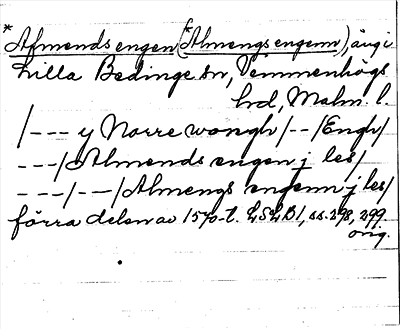 *Almends engen (*Almengs engenn), äng i
Lilla Bedinge sn, Vemmenhögs
hd, Malm. l.
/--- y Norre wongh/--/Engh/
---/Almends engen j les/
---/--/Almengs engenn j les/
förra delen av 1570-t. LSLB1, ss. 298, 299
orig.